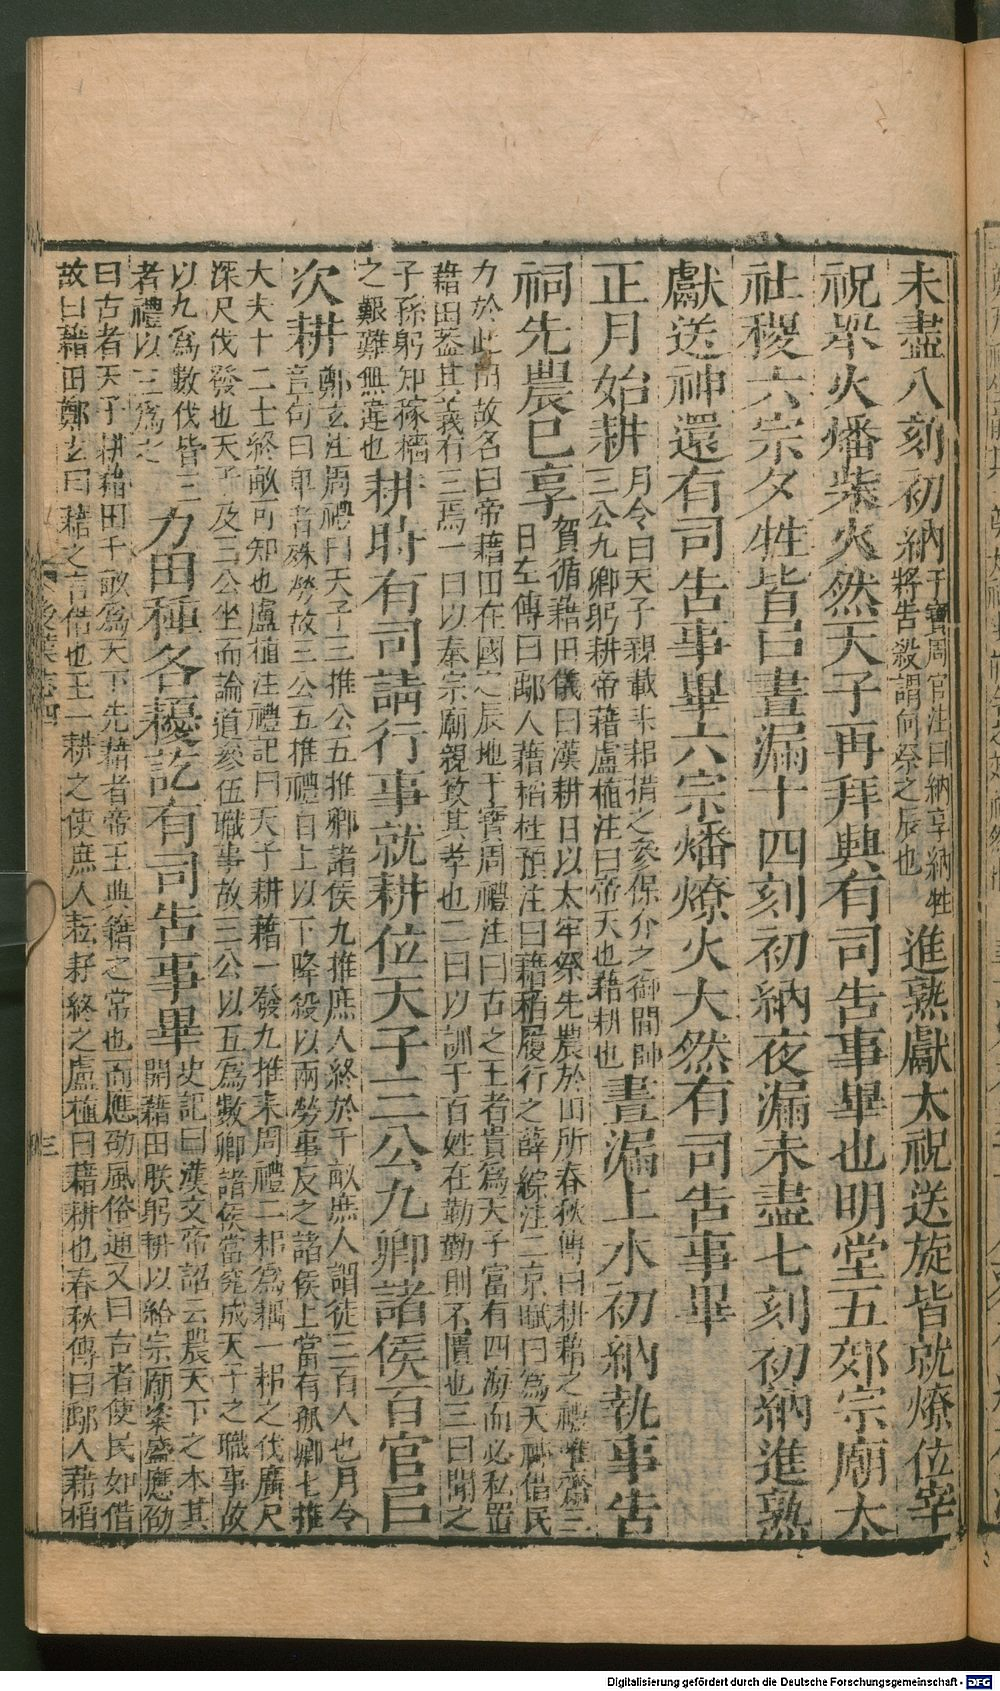 未盡八刻初納干寶周官注曰納亨納牲將告殺謂向祭之辰也進熟獻太祝送旋皆就燎位宰
祝舉火燔柴火然天子再拜興有司告事畢也明堂五郊宗廟太
社稷六宗夕牲皆曰晝漏十四刻初納夜漏未盡七刻初納進熟
獻送神還有司告事畢六宗燔燎火大然有司告事畢
正月始耕月令曰天子親載耒耜措之參保介之御閒帥三公九卿躬耕帝藉盧植注曰帝天也藉耕也晝漏上水初納執事告
祠先農已享賀循藉田儀曰漢耕日以太牢祭先農於田所春秋傳曰耕藉之禮唯齋三日左傳曰鄅人藉稻杜預注曰藉稻履行之薛綜注二京賦曰為天神借民
力於此田故名曰帝藉田在國之辰地干寶周禮注曰古之王者貴為天子富有四海而必私置
藉田蓋其義有三焉一曰以奉宗廟親致其孝也二曰以訓于百姓在勤勤則不匱也三曰聞之
子孫躬知稼穡之艱難無違也耕時有司請行事就耕位天子三公九卿諸侯百官以
次耕鄭玄注周禮曰天子三推公五推卿諸侯九推庶人終於千畝庶人謂徒三百人也月令章句曰卑者殊勞故三公五推禮自上以下降殺以兩勞事反之諸侯上當有孤卿七推
大夫十二士終畝可知也盧植注禮記曰天子耕藉一發九推耒周禮二耜為耦一耜之伐廣尺
深尺伐發也天子及三公坐而論道參伍職事故三公以五為數卿諸侯當究成天子之職事故
以九為數伐皆三者禮以三為之力田種各耰訖有司告事畢史記曰漢文帝詔云農天下之本其開藉田朕躬耕以給宗廟粢盛應劭
曰古者天子耕藉田千畝為天下先藉者帝王典籍之常也而應劭風俗通又曰古者使民如借
故曰藉田鄭玄曰藉之言借也王一耕之使庶人耘芓終之盧植曰藉耕也春秋傳曰鄅人藉稻
後漢志四
三
Digitalisierung gefördert durch die Deutsche Forschungsgemeinschaft - DFG